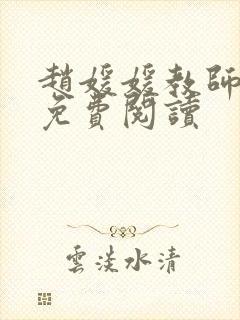 趙媛媛教師
免費閱讀
雲淡水清